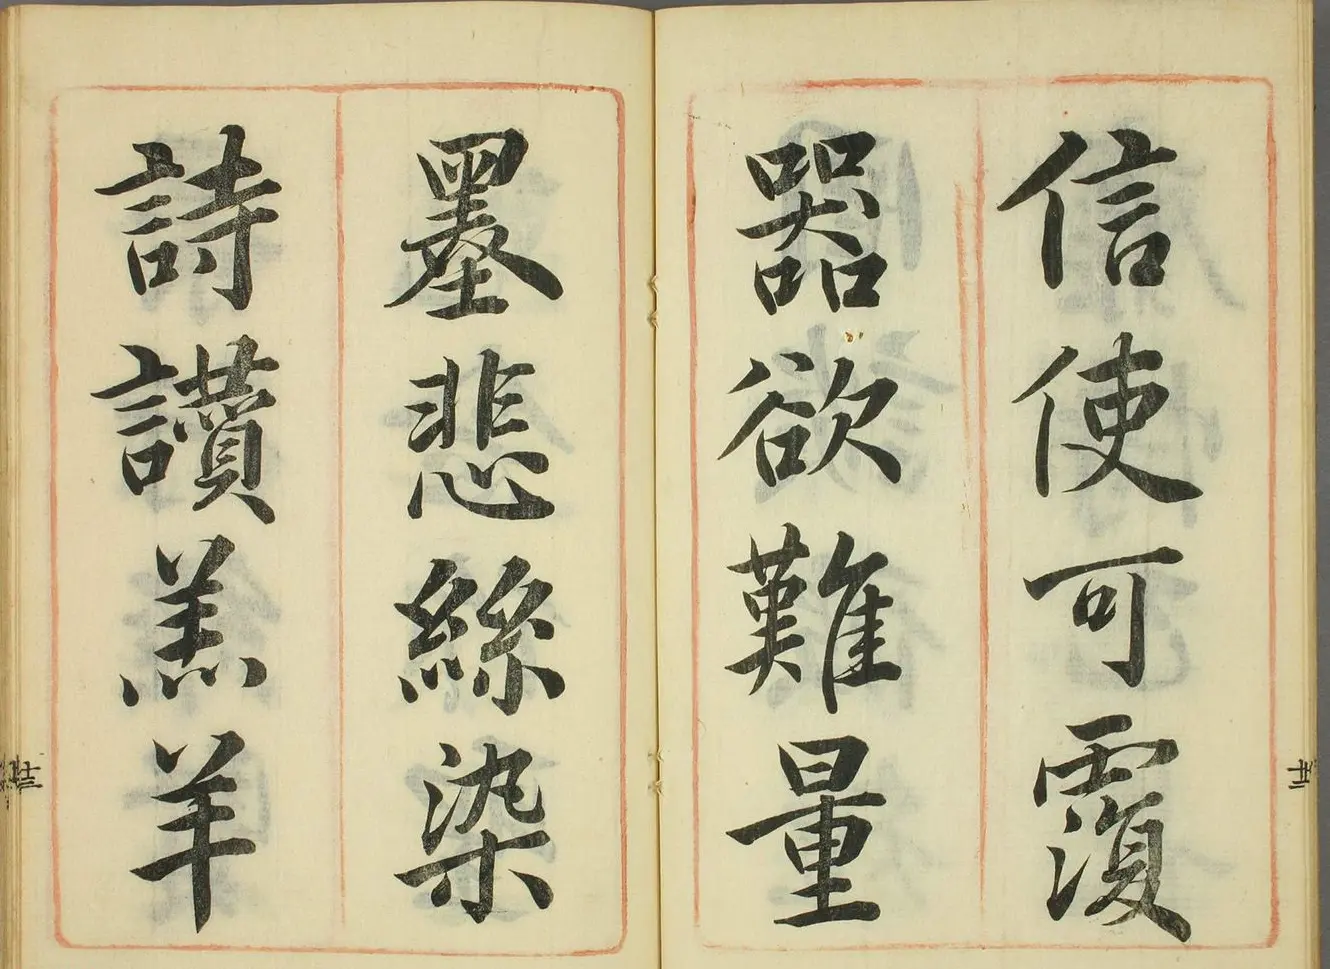 信使可覆
器欲難量
墨悲絲染
詩讃羔羊